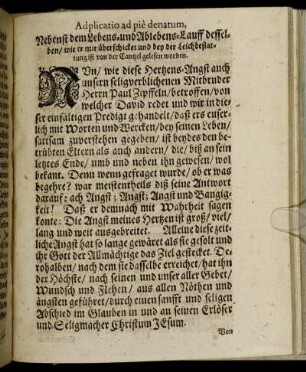 Adplicatio ad piè denatum,
Nebenst dem Lebens-und Ablebens-Lauff dessel-
ben/ wie er mir überschicket und bey der Leichbestat-
tung ist von der Cantzel gelesen worden.
NUn/ wie diese Hertzens-Angst auch
unsern seligverblichenen Mitbruder
Herrn Paul Zipffeln/ betroffen/ von
welcher David redet und wir in die-
ser einfältigen Predigt gehandelt/ daß ers euser-
lich mit Worten und Wercken/ bey seinen Leben/
sattsam zuverstehen gegeben/ ist beydes den be-
trübten Eltern als auch andern/ die/ biß an sein
letztes Ende/ umb und neben ihn gewesen/ wol
bekant. Denn wenn gefragt wurde/ ob er was
begehre? war meistentheils diß seine Antwort
darauf: ach Angst; Angst! Angst und Bangig-
keit! Daß er demnach mit Wahrheit sagen
konte: Die Angst meines Hertzen ist groß/ viel/
lang und weit ausgebreitet. Alleine diese zeit-
liche Angst hat so lange gewäret als sie gesolt und
ihr Gott der Allmächtige das Ziel gestecket. De-
rohalben/ nach dem sie dasselbe erreichet/ hat ihn
der Höchste/ nach seinen und unser aller Gebet/
Wundsch und Flehen/ aus allen Nöthen und
ängsten geführet/ durch einen sanfft und seligen
Abschied im Glauben in und an seinen Erlöser
und Seligmacher Christum JEsum.
Von